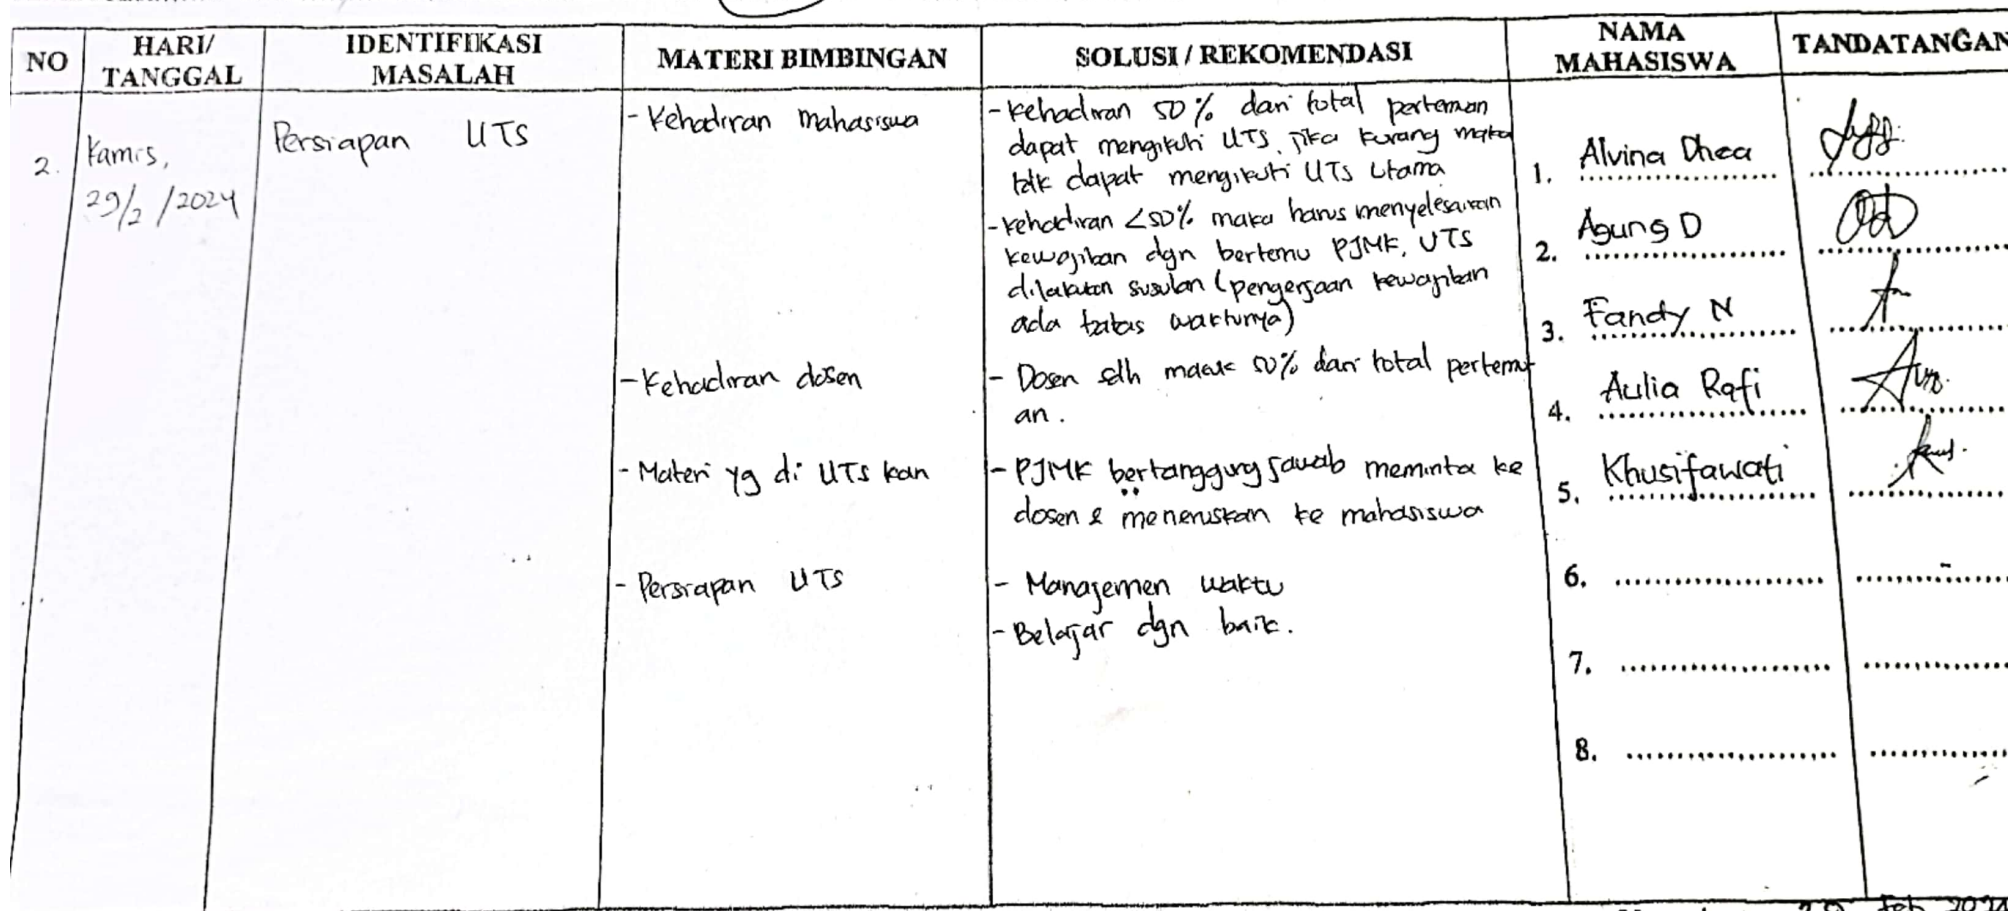 NO
HARI/
TANGGAL
IDENTIFIKASI
MASALAH
MATERI BIMBINGAN
SOLUSI / REKOMENDASI
NAMA
MAHASISWA
TANDATANGAN
2.
Kamis,
29/2/2024
Persiapan UTS
- Kehadiran mahasiswa
- Kehadiran 50% dari total perteman
dapat mengikuti UTS, jika kurang maka
tdk dapat mengikuti UTS Utama
- Kehadiran <50% maka harus menyelesaikan
kewajiban dgn bertemu PJMK, UTS
dilakukan susulan (pengerjaan kewajiban
ada batas waktunya)
- Kehadiran dosen
- Dosen sdh masuk 50% dari total pertemu
an.
- Materi yg di UTS kan
- PJMK bertanggung jawab meminta ke
dosen & meneruskan ke mahasiswa
- Persiapan UTS
- Manajemen waktu
- Belajar dgn baik.
1. Alvina Dhea
2. Agung D
3. Fandy N
4. Aulia Rafi
5. Khusifawati
6.
7.
8.
Feb 2024